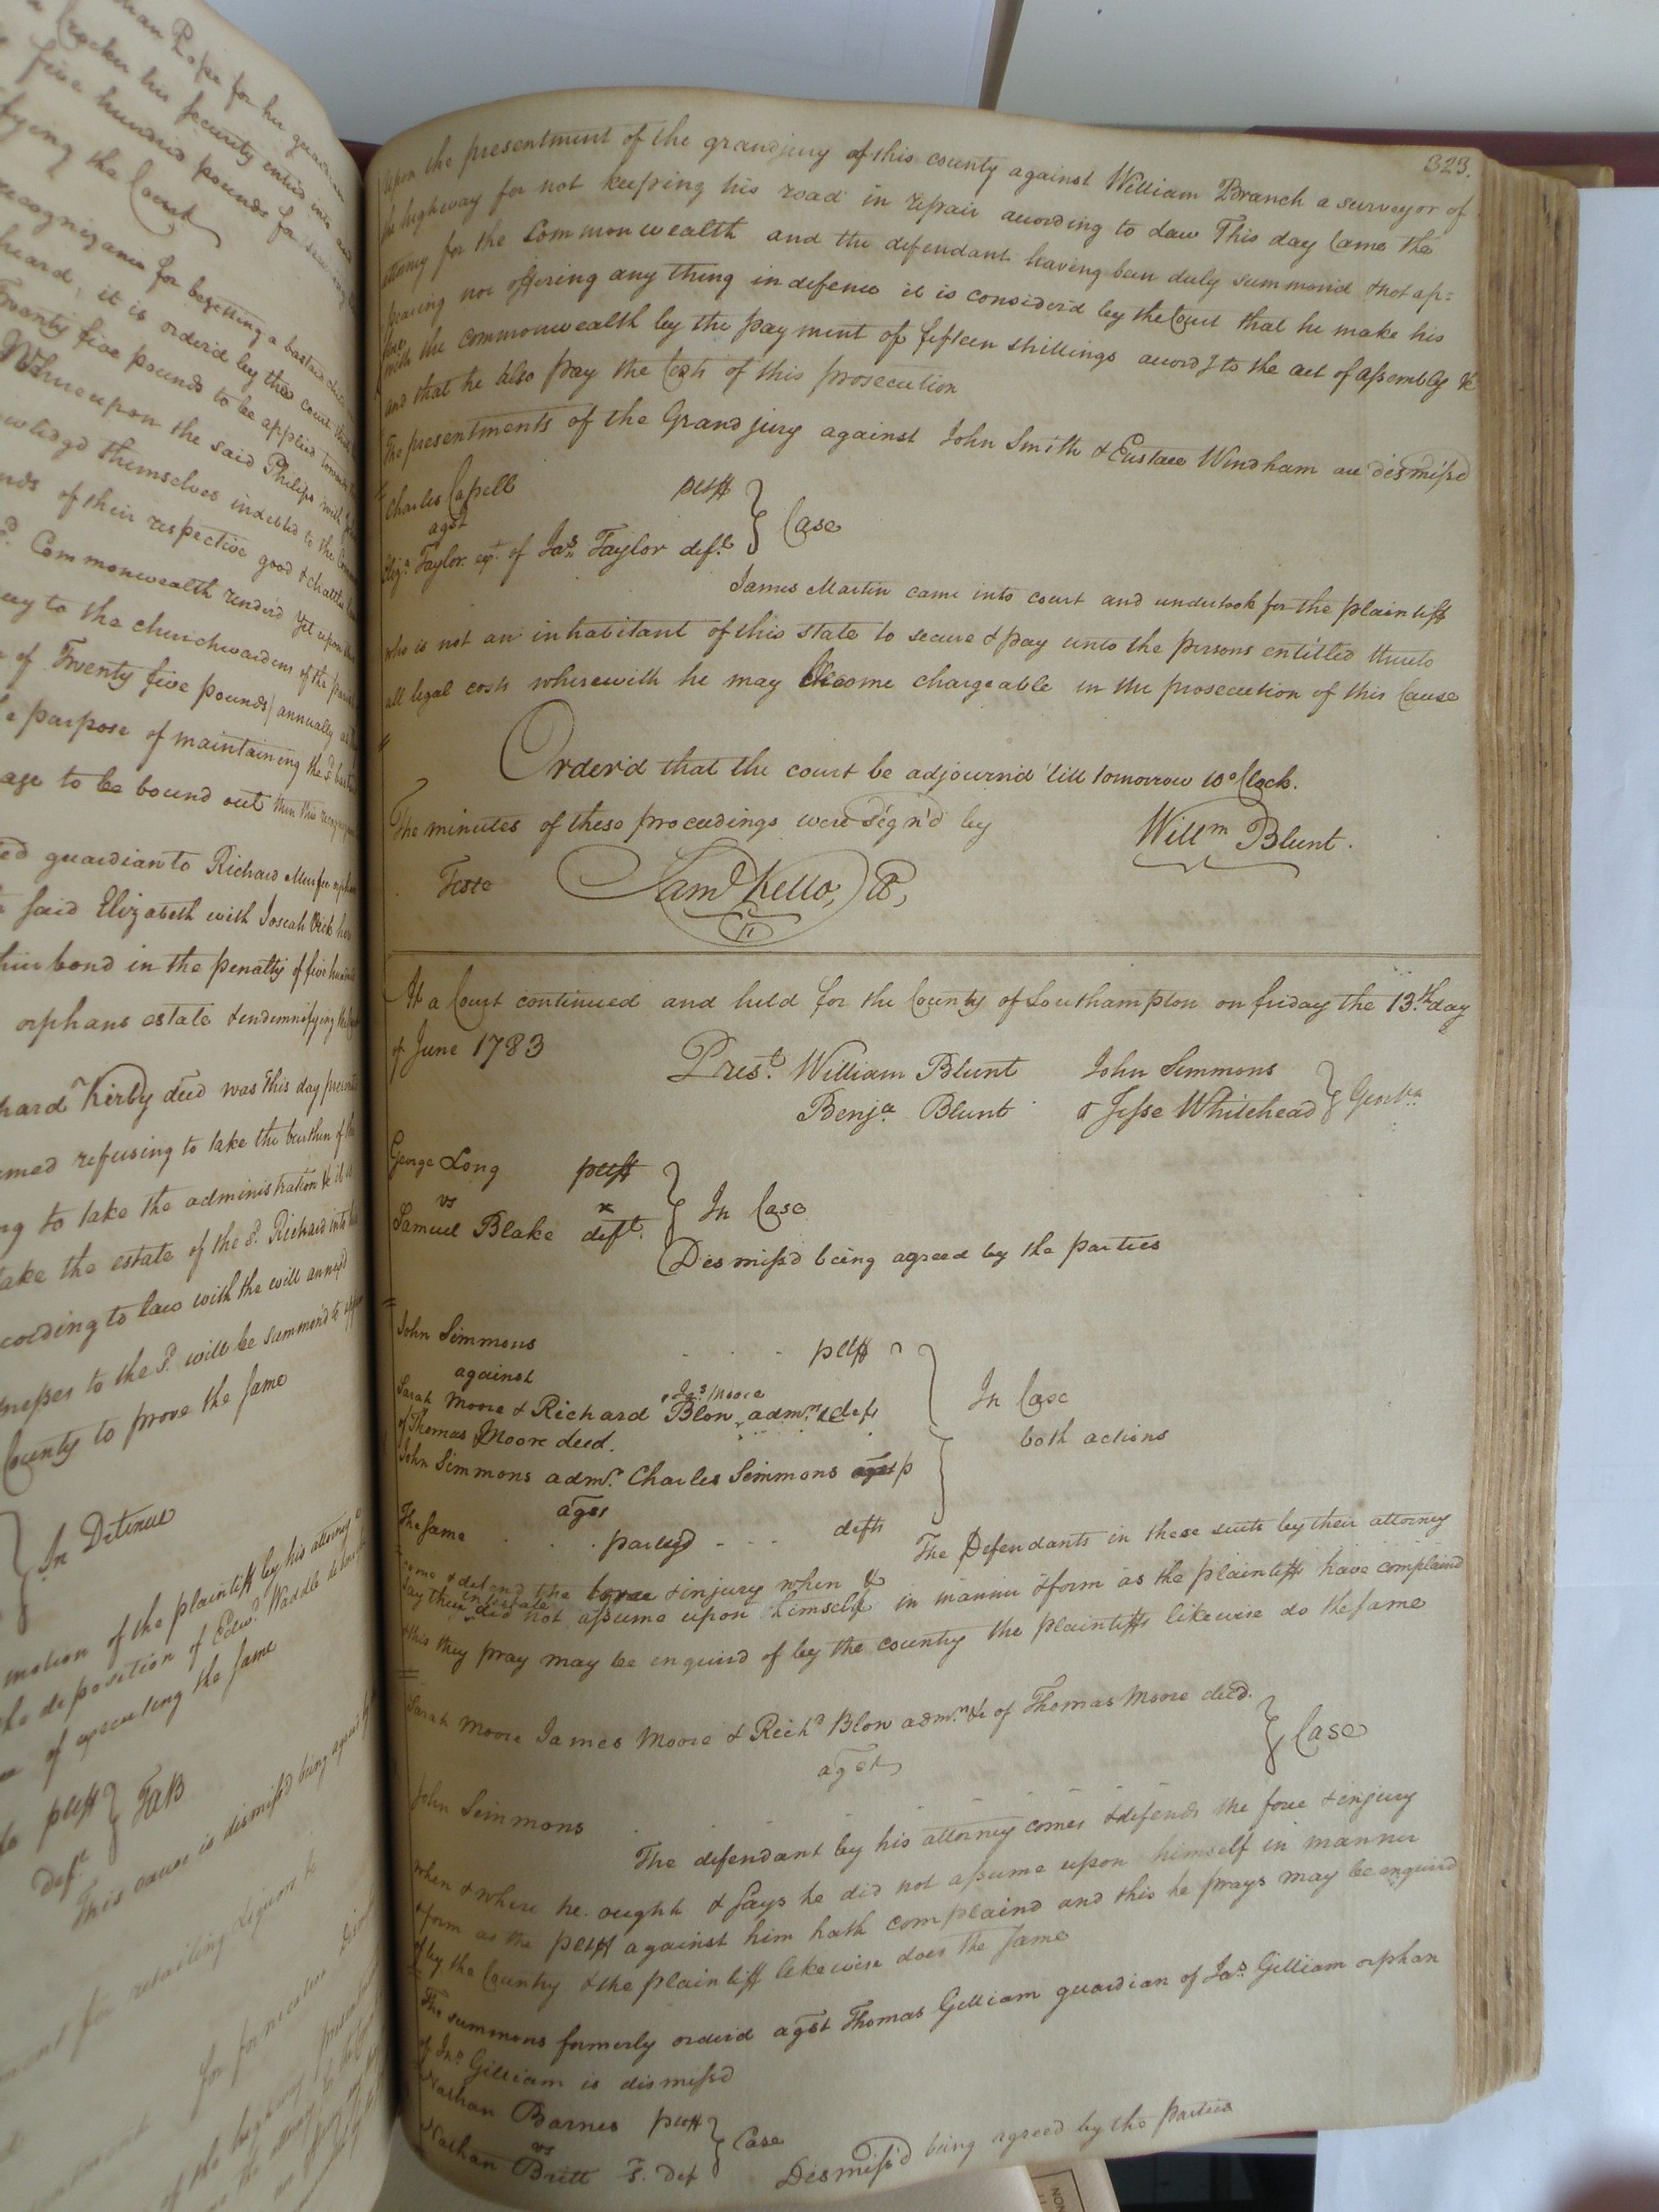 han Pope for her guardian
Crocker his security enterd into and
five hundred pounds for
fying the Court
recognizance for begetting a bastard
heard, it is orderd by the court that
Twenty five pounds to be applied towards
Whereupon the said Philips with
owledgd themselves indebted to the
nds of their respective good & chattles
Commonwealth renderd yet upon
ey to the churchwardens of the
of Twenty five pounds annually
purpose of maintaining the sd.
age to be bound out then this
ed guardian to Richard
said Elizabeth with Joseah Vick her
their bond in the penalty of five
orphans estate & indemnifying the
hard Kirby decd was this day
med refusing to take the burthen of
ng to take the administration & it is
take the estate of the sd. Richard into
cording to law with the will annexd
nesses to the sd. will be summond to
County to prove the same
In Detinue
motion of the plaintiff by his attorney
he deposition of Edwd. Waddle
of executing the same
pltff } TAB
deft.
This cause is dismissd being agreed
for retailing liquors
for fornication
of the highway
323.
Upon the presentment of the grandjury of this county against William Branch a surveyor of
the highway for not keeping his road in repair according to law This day came the
attorney for the Commonwealth and the defendant having been duly summond & not ap=
pearing nor offering any thing in defence it is considerd by the Court that he make his
fine with the commonwealth by the payment of fifteen shillings accordg to the act of assembly &c
and that he also pay the Costs of this prosecution
The presentments of the Grandjury against John Smith & Eustace Windham are dismissd
Charles Capell pltff } Case
agst
Eliza. Taylor exx. of Jas. Taylor deft.
James Martin came into court and undertook for the plaintiff
who is not an inhabitant of this state to secure & pay unto the persons entitled thereto
all legal costs wherewith he may become chargeable in the prosecution of this Cause
Order'd that the court be adjourn'd 'till tomorrow 10 o Clock.
The minutes of these proceedings were sign'd by Willm Blunt.
Teste Saml Kello, Cl,
At a Court continued and held for the County of Southampton on friday the 13.th day
of June 1783 Prest. William Blunt John Simmons
Benja. Blunt & Jesse Whitehead } Gentn.
George Long pltff } In Case
vs
Samuel Blake deft.
Dismissd being agreed by the parties
John Simmons pltff
against
Jas. Moore
Sarah Moore & Richard Blow admrs. &c defts } In Case
of Thomas Moore decd. both actions
John Simmons admr. Charles Simmons p
agst
The same defts
The Defendants in these suits by their attorney
come & defend the force & injury when &c
say their intestate did not assume upon himself in manner & form as the plaintiffs have complaind
& this they pray may be enquird of by the country the plaintiffs likewise do the same
Sarah Moore James Moore & Richd Blow admrs. &c of Thomas Moore decd. } Case
agst
John Simmons
The defendant by his attorney comes & defends the force & injury
when & where he ought & says he did not assume upon himself in manner
& form as the pltff against him hath complaind and this he prays may be enquird
of by the Country & the plaintiff likewise does the same
The summons formerly orderd agst Thomas Gilliam guardian of Jas. Gilliam orphan
of Jno. Gilliam is dismissd
Nathan Barnes pltff } Case
vs
Nathan Britt Def
Dismissd being agreed by the parties